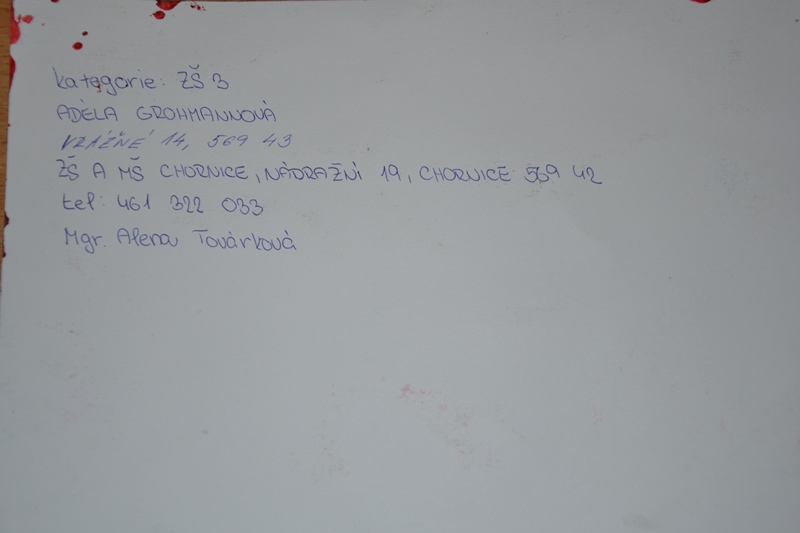 kategorie: ZŠ 3
ADÉLA GROHMANNOVÁ
VRÁŽNÉ 14, 569 43
ZŠ A MŠ CHORNICE, NÁDRAŽNÍ 19, CHORNICE 569 42
tel: 461 322 033
Mgr. Alena Továrková